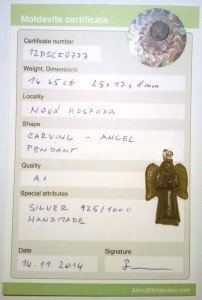 Moldavite certificate
Certificate number
Weight, Dimensions
14.45ct 25x17x8mm
Locality
NOVÁ HOSPODA
Shape
CARVING - ANGEL
PENDANT
Quality
A+
Special attributes
SILVER 925/1000
HANDMADE
Date Signature
14.11.2014
AboutMoldavites.com